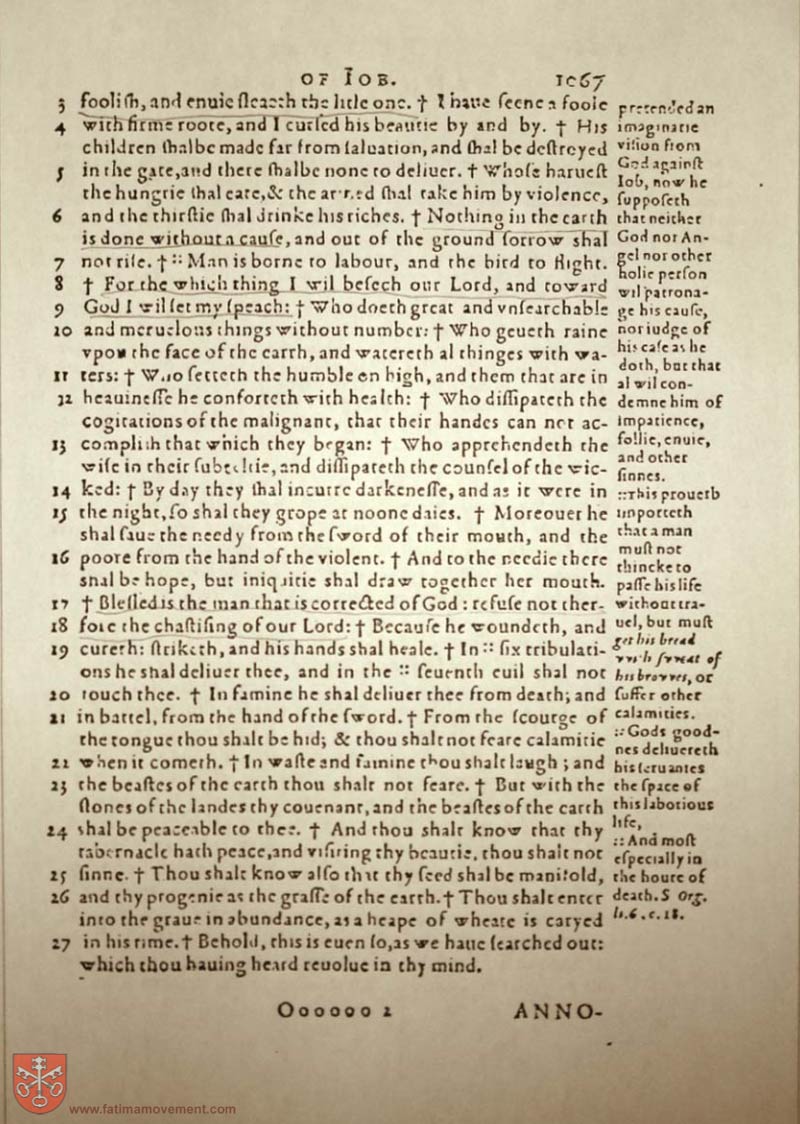 OF IOB. 1067
3 fooliſh, and enuie ſleaeth the litle one. † I haue ſeene a foole
4 with firme roote, and I curſed his beautie by and by. † His
children ſhalbe made far from ſaluation, and ſhal be deſtroyed
5 in the gate, and there ſhalbe none to deliuer. † Whoſe harueſt
the hungrie ſhal eate, & the armed ſhal take him by violence,
6 and the thirſtie ſhal drinke his riches. † Nothing in the earth
is done without a cauſe, and out of the ground ſorrow shal
7 not riſe. † :: Man is borne to labour, and the bird to flight.
8 † For the which thing I wil beſech our Lord, and toward
9 God I wil ſet my ſpeach: † Who doeth great and vnſearchable
10 and meruelous things without number: † Who geueth raine
vpon the face of the earth, and watereth al thinges with wa-
11 ters: † Who ſetteth the humble on high, and them that are in
12 heauineſſe he conforteth with health: † Who diſſipateth the
cogitations of the malignant, that their handes can not ac-
13 complish that which they began: † Who apprehendeth the
wiſe in their ſubteltie, and diſſipateth the counſel of the wic-
14 ked: † By day they ſhal incurre darkeneſſe, and as it were in
15 the night, ſo shal they grope at noone daies. † Moreouer he
shal ſaue the needy from the ſword of their mouth, and the
16 poore from the hand of the violent. † And to the needie there
shal be hope, but iniquitie shal draw together her mouth.
17 † Bleſſed is the man that is corrected of God: refuſe not ther-
18 fore the chaſtiſing of our Lord: † Becauſe he woundeth, and
19 cureth: ſtriketh, and his hands shal heale. † In :: ſix tribulati-
ons he shal deliuer thee, and in the :: ſeuenth euil shal not
20 touch thee. † In famine he shal deliuer thee from death; and
21 in battel, from the hand of the ſword. † From the ſcourge of
the tongue thou shalt be hid; & thou shalt not feare calamitie
22 when it cometh. † In waſte and famine thou shalt laugh; and
23 the beaſtes of the earth thou shalt not feare. † But with the
ſtones of the landes thy couenant, and the beaſtes of the earth
24 shal be peaceable to thee. † And thou shalt know that thy
tabernacle hath peace, and viſiting thy beautie, thou shalt not
25 ſinne. † Thou shalt know alſo that thy ſeed shal be manifold,
26 and thy progenie as the graſſe of the earth. † Thou shalt enter
into the graue in abundance, as a heape of wheate is caryed
27 in his time. † Behold, this is euen ſo, as we haue ſearched out:
which thou hauing heard reuolue in thy mind.
pretended an
imaginarie
viſion from
God againſt
Iob, now he
ſuppoſeth
that neither
God nor An-
gel nor other
holie perſon
wil patrona-
ge his cauſe,
nor iudge of
his caſe as he
doth, but that
al wil con-
demne him of
impatience,
follie, enuie,
and other
ſinnes.
:: This prouerb
importeth
that a man
muſt not
thincke to
paſſe his life
without tra-
uel, but muſt
get his bread
with ſweat of
his browes, or
ſuffer other
calamities.
:: Gods good-
nes deliuereth
his ſeruantes
the ſpace of
this laborious
life,
:: And moſt
eſpecially in
the houre of
death. S Grg.
li. 6. c. 18.
Oooooo 2 ANNO-
www.fatimamovement.com